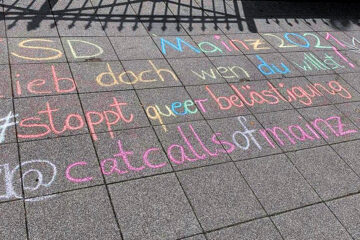 CSD Mainz 2021
Lieb doch wen du willst
#stoppt queerbelästigung
@catcallsofmainz